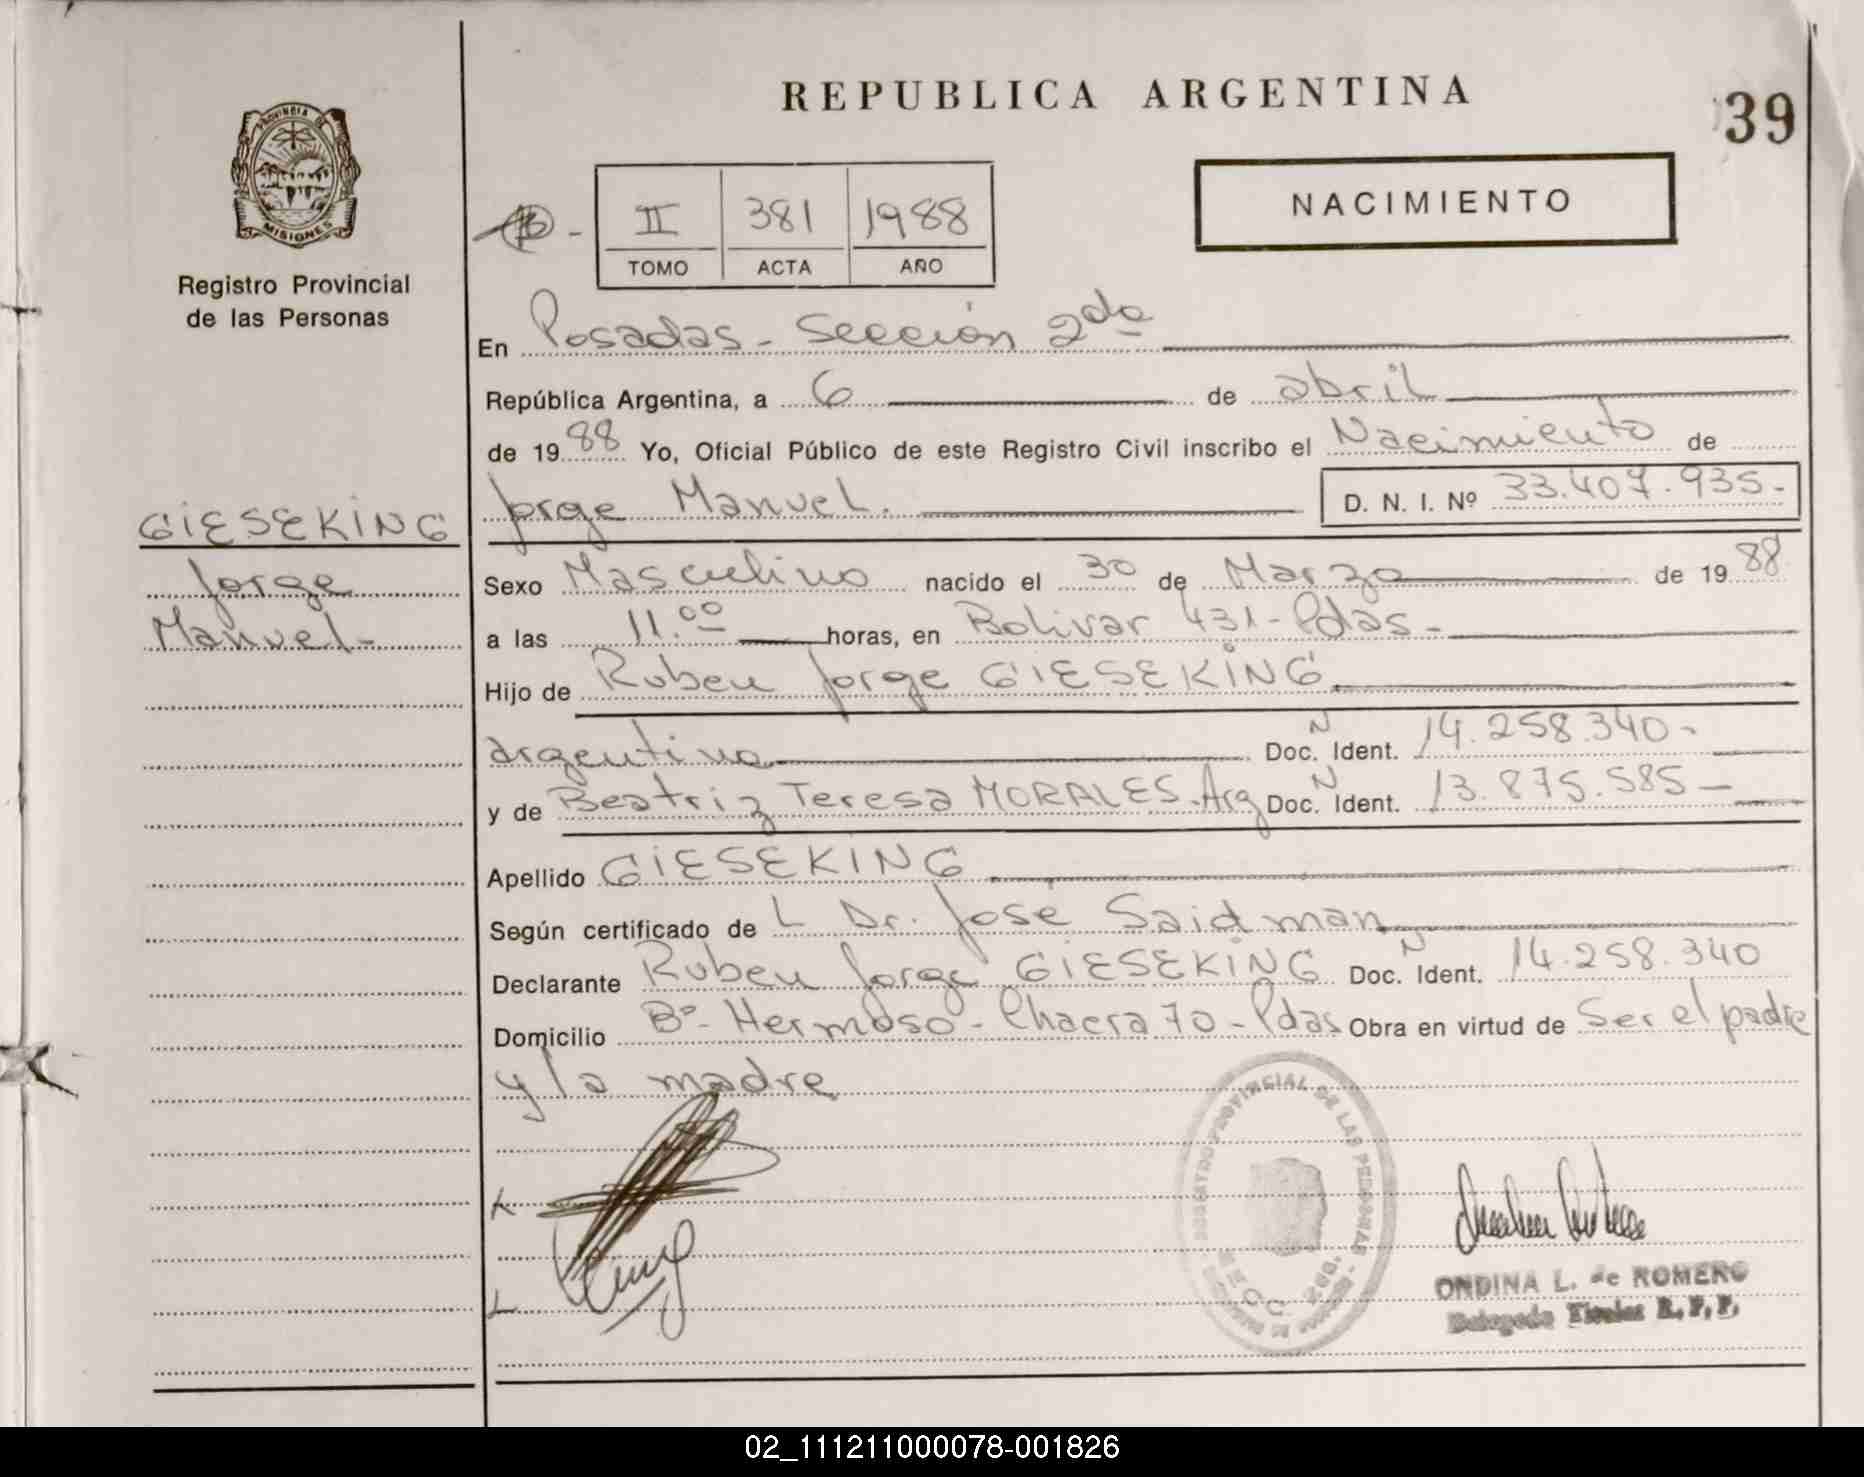 REPUBLICA ARGENTINA
39
PROVINCIA DE
MISIONES
Registro Provincial
de las Personas
NACIMIENTO
II 381 1988
TOMO ACTA AÑO
En Posadas - Sección 2da
República Argentina, a 6 de abril
de 1988 Yo, Oficial Público de este Registro Civil inscribo el Nacimiento de
Jorge Manuel. D. N. I. Nº 33.407.935.-
GIESEKING
Jorge
Manuel-
Sexo Masculino nacido el 30 de Marzo de 1988
a las 11.00 horas, en Bolivar 431 - Pdas -
Hijo de Ruben Jorge GIESEKING
argentino Doc. N Ident. 14.258.340-
y de Beatriz Teresa MORALES. Arg Doc. N Ident. 13.875.585-
Apellido GIESEKING
Según certificado de L Dr. José Saidman
Declarante Ruben Jorge GIESEKING Doc. N Ident. 14.258.340
Domicilio Bº- Hermoso - Chacra 70 - Pdas Obra en virtud de Ser el padre
y la madre
REGISTRO PROVINCIAL DE LAS PERSONAS
ONDINA L. de ROMERO
Delegada Titular R. P. P.
02_111211000078-001826